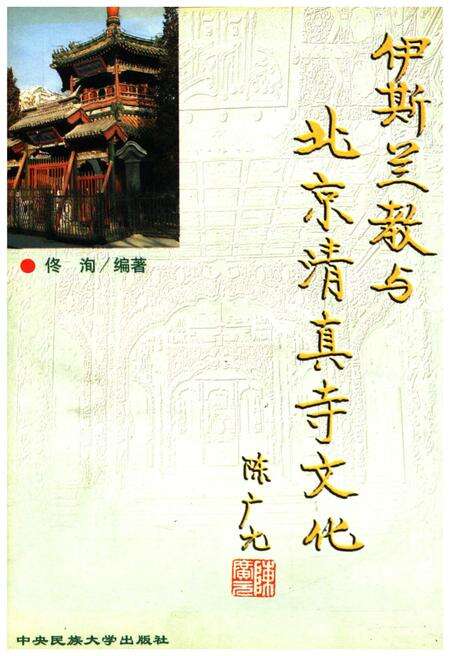 伊斯兰教与
北京清真寺文化
陈广元
陳廣元
佟 洵/编著
中央民族大学出版社